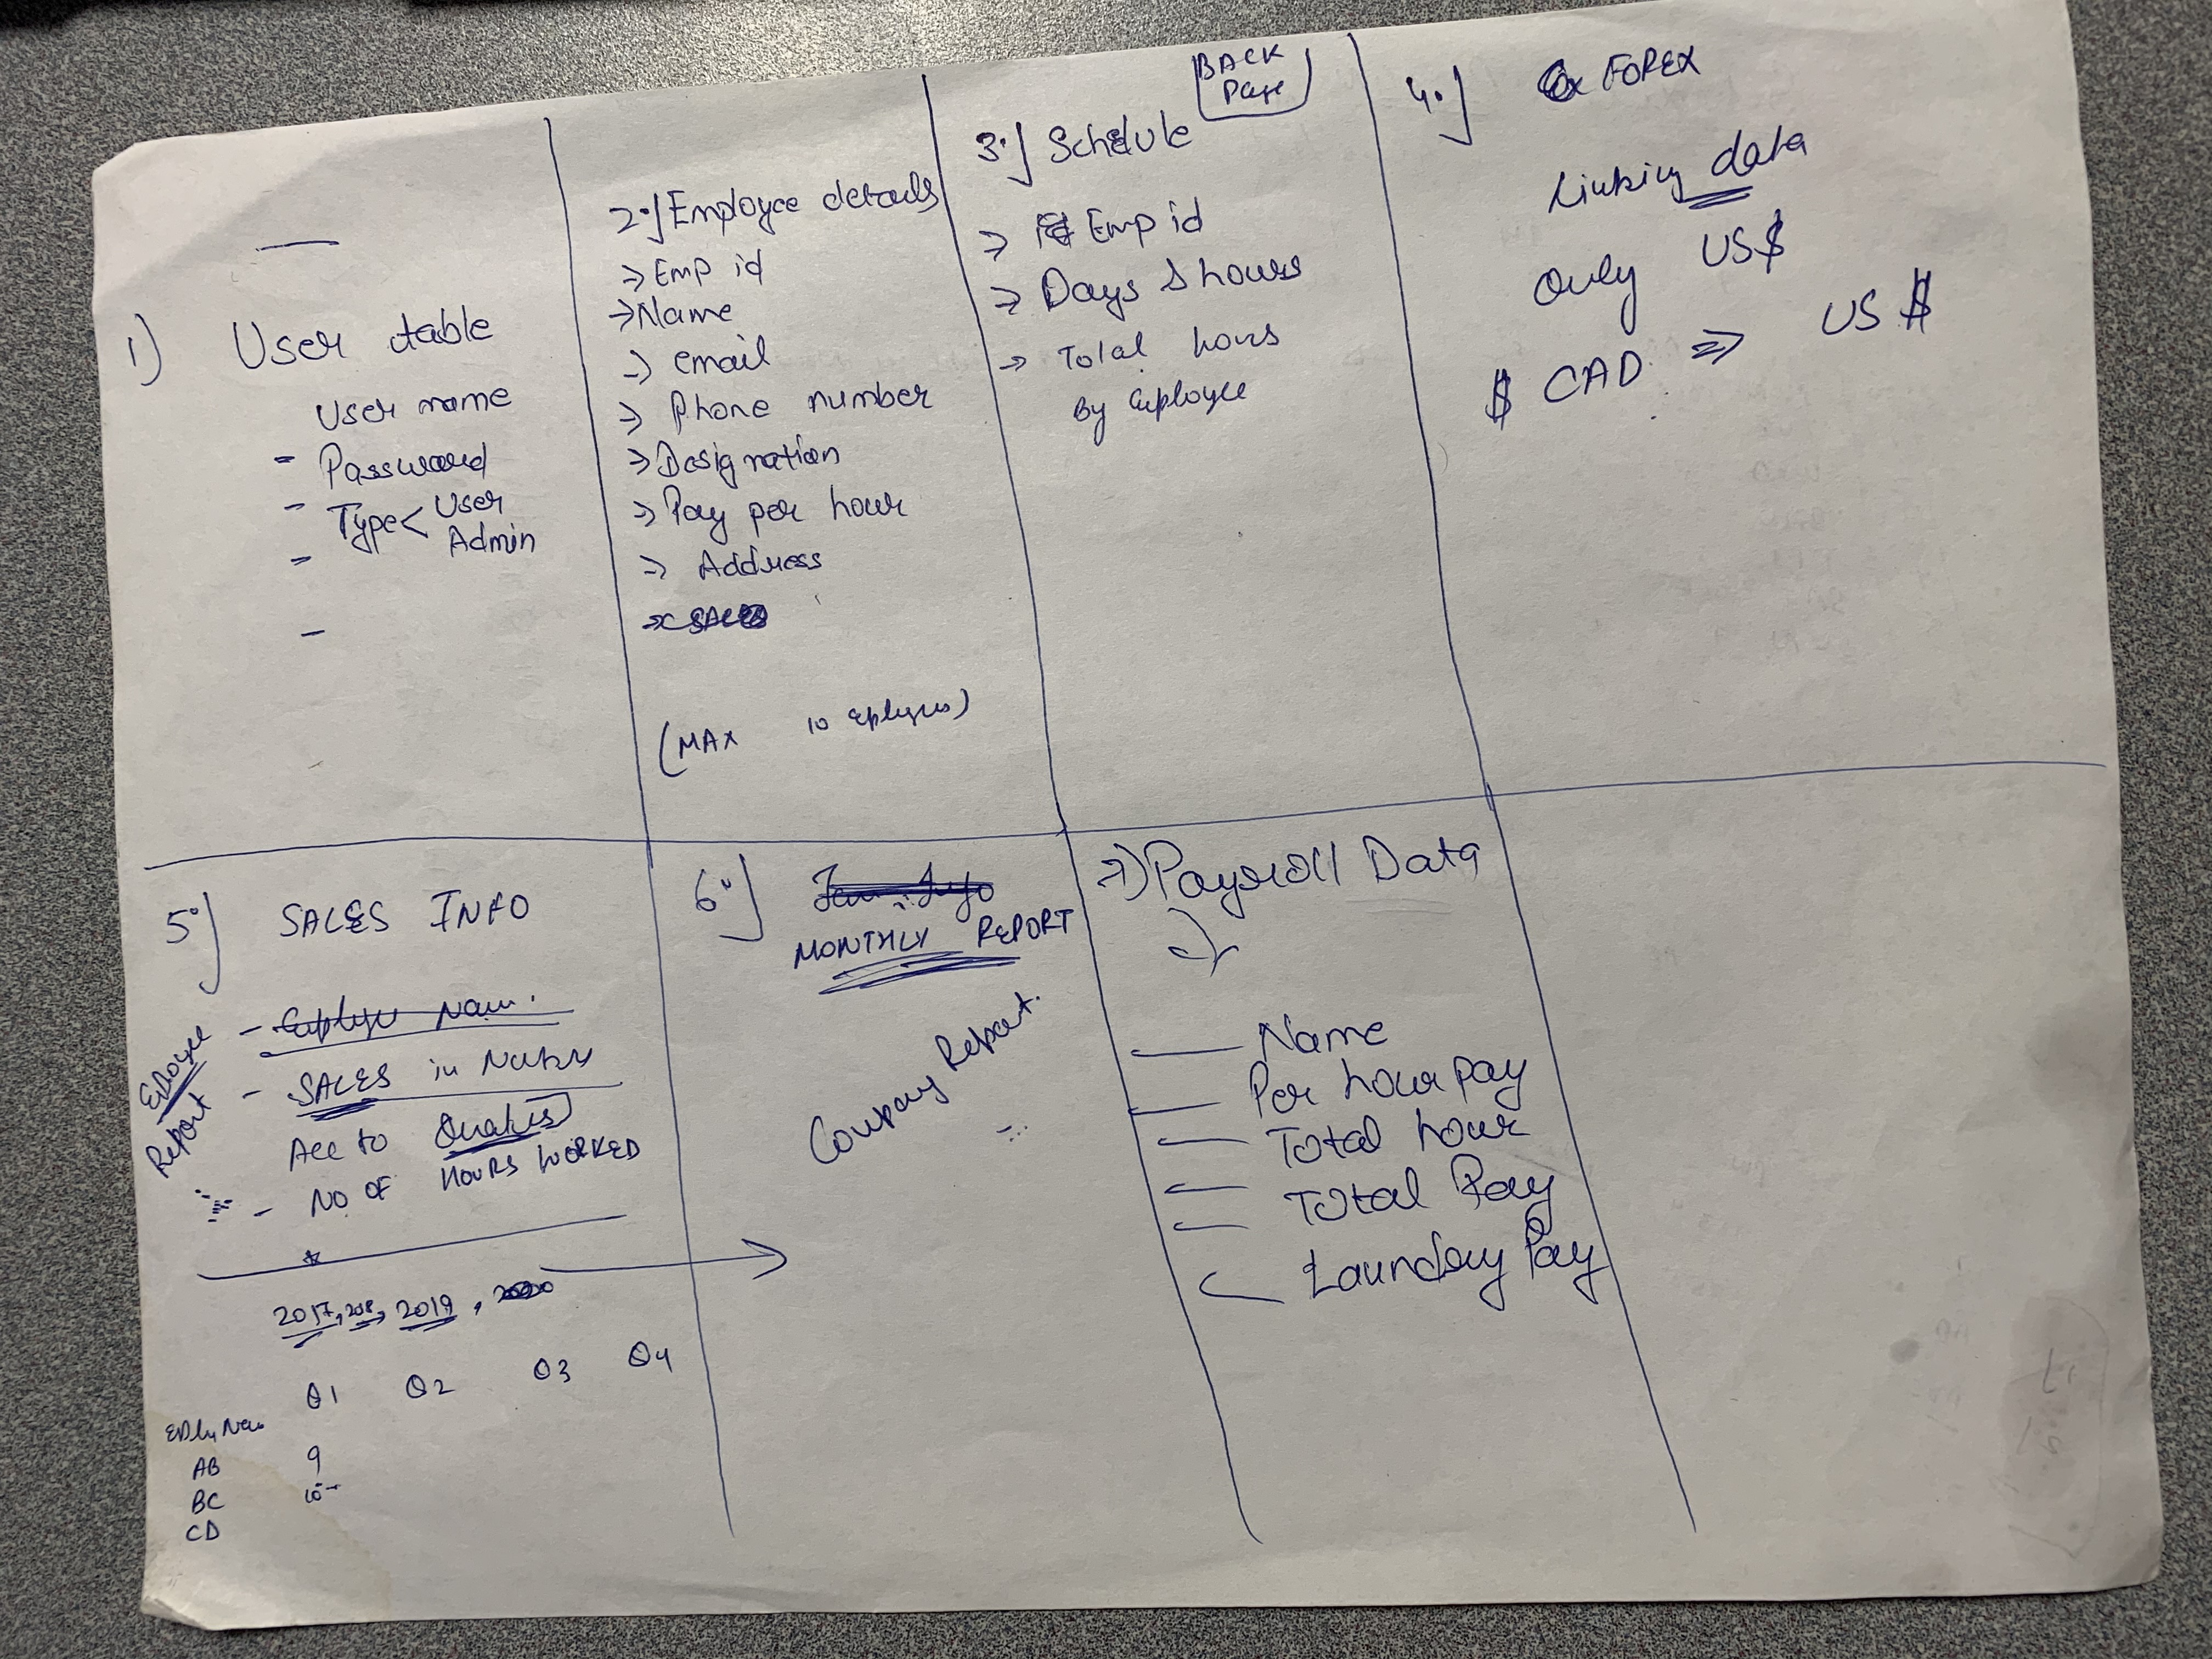 1) User table
User name
- Password
- Type < User
- Admin
-
2.] Employee details
=> Emp id
=> Name
=> email
=> Phone number
=> Designation
=> Pay per hour
=> Address
(MAX 10
BACK
PAGE
3.] Schedule
=> Emp id
=> Days & hours
=> Total hours
by employee
4.] FOREX
Linking data
Only US$
$ CAD => US $
5.] SALES INFO
- SALES in Numbers
Acc to Quarters
- NO OF HOURS WORKED
2017, 2018, 2019,
Q1 Q2 Q3 Q4
AB 9
BC 10
CD
6.] MONTHLY REPORT
7) Payroll Data
Name
Per hour pay
Total hour
Total Pay
Laundry Pay